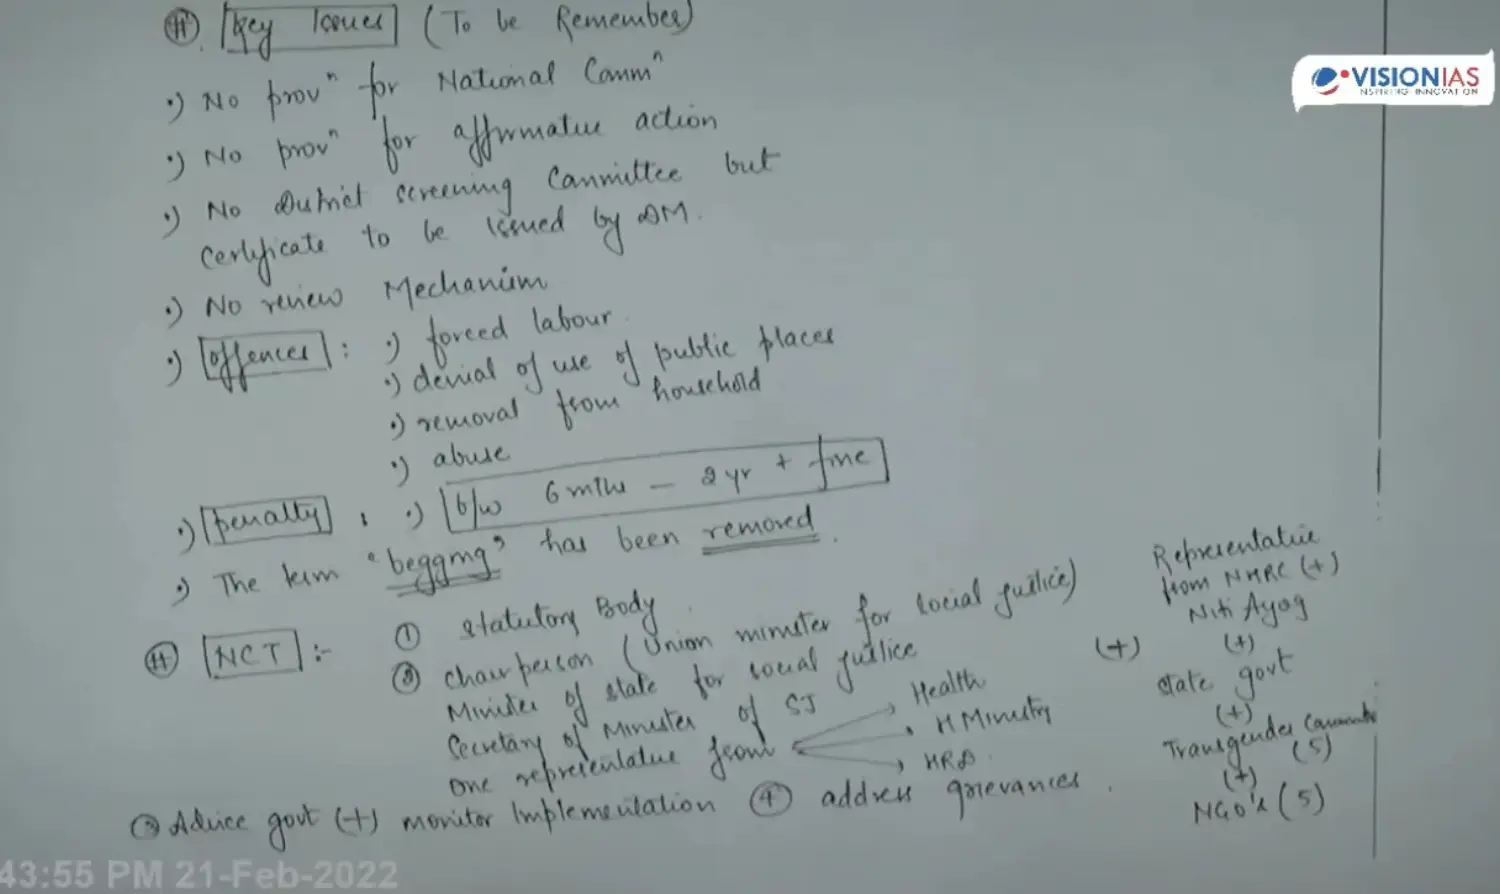 (#) Key Issues (To be Remember)
VISIONIAS
INSPIRING INNOVATION
•) No provⁿ for National Commⁿ
•) No provⁿ for affirmative action
•) No District screening Committee but
certificate to be issued by DM.
•) No review Mechanism
•) offences : •) forced labour
•) denial of use of public places
•) removal from household
•) abuse
•) penalty : •) b/w 6 mths – 2 yr + fine
•) The term "begging" has been removed.
(#) NCT :- ① statutory Body.
② Chairperson (Union minister for social justice)
Minister of state for social justice
Secretary of Minister of SJ
one representative from Health
H Ministry
HRD
(+)
Representative
from NHRC (+)
Niti Ayog
(+)
state govt
(+)
Transgender
(5)
(+)
NGO's (5)
③ Advice govt (+) monitor Implementation ④ address grievances.
43:55 PM 21-Feb-2022